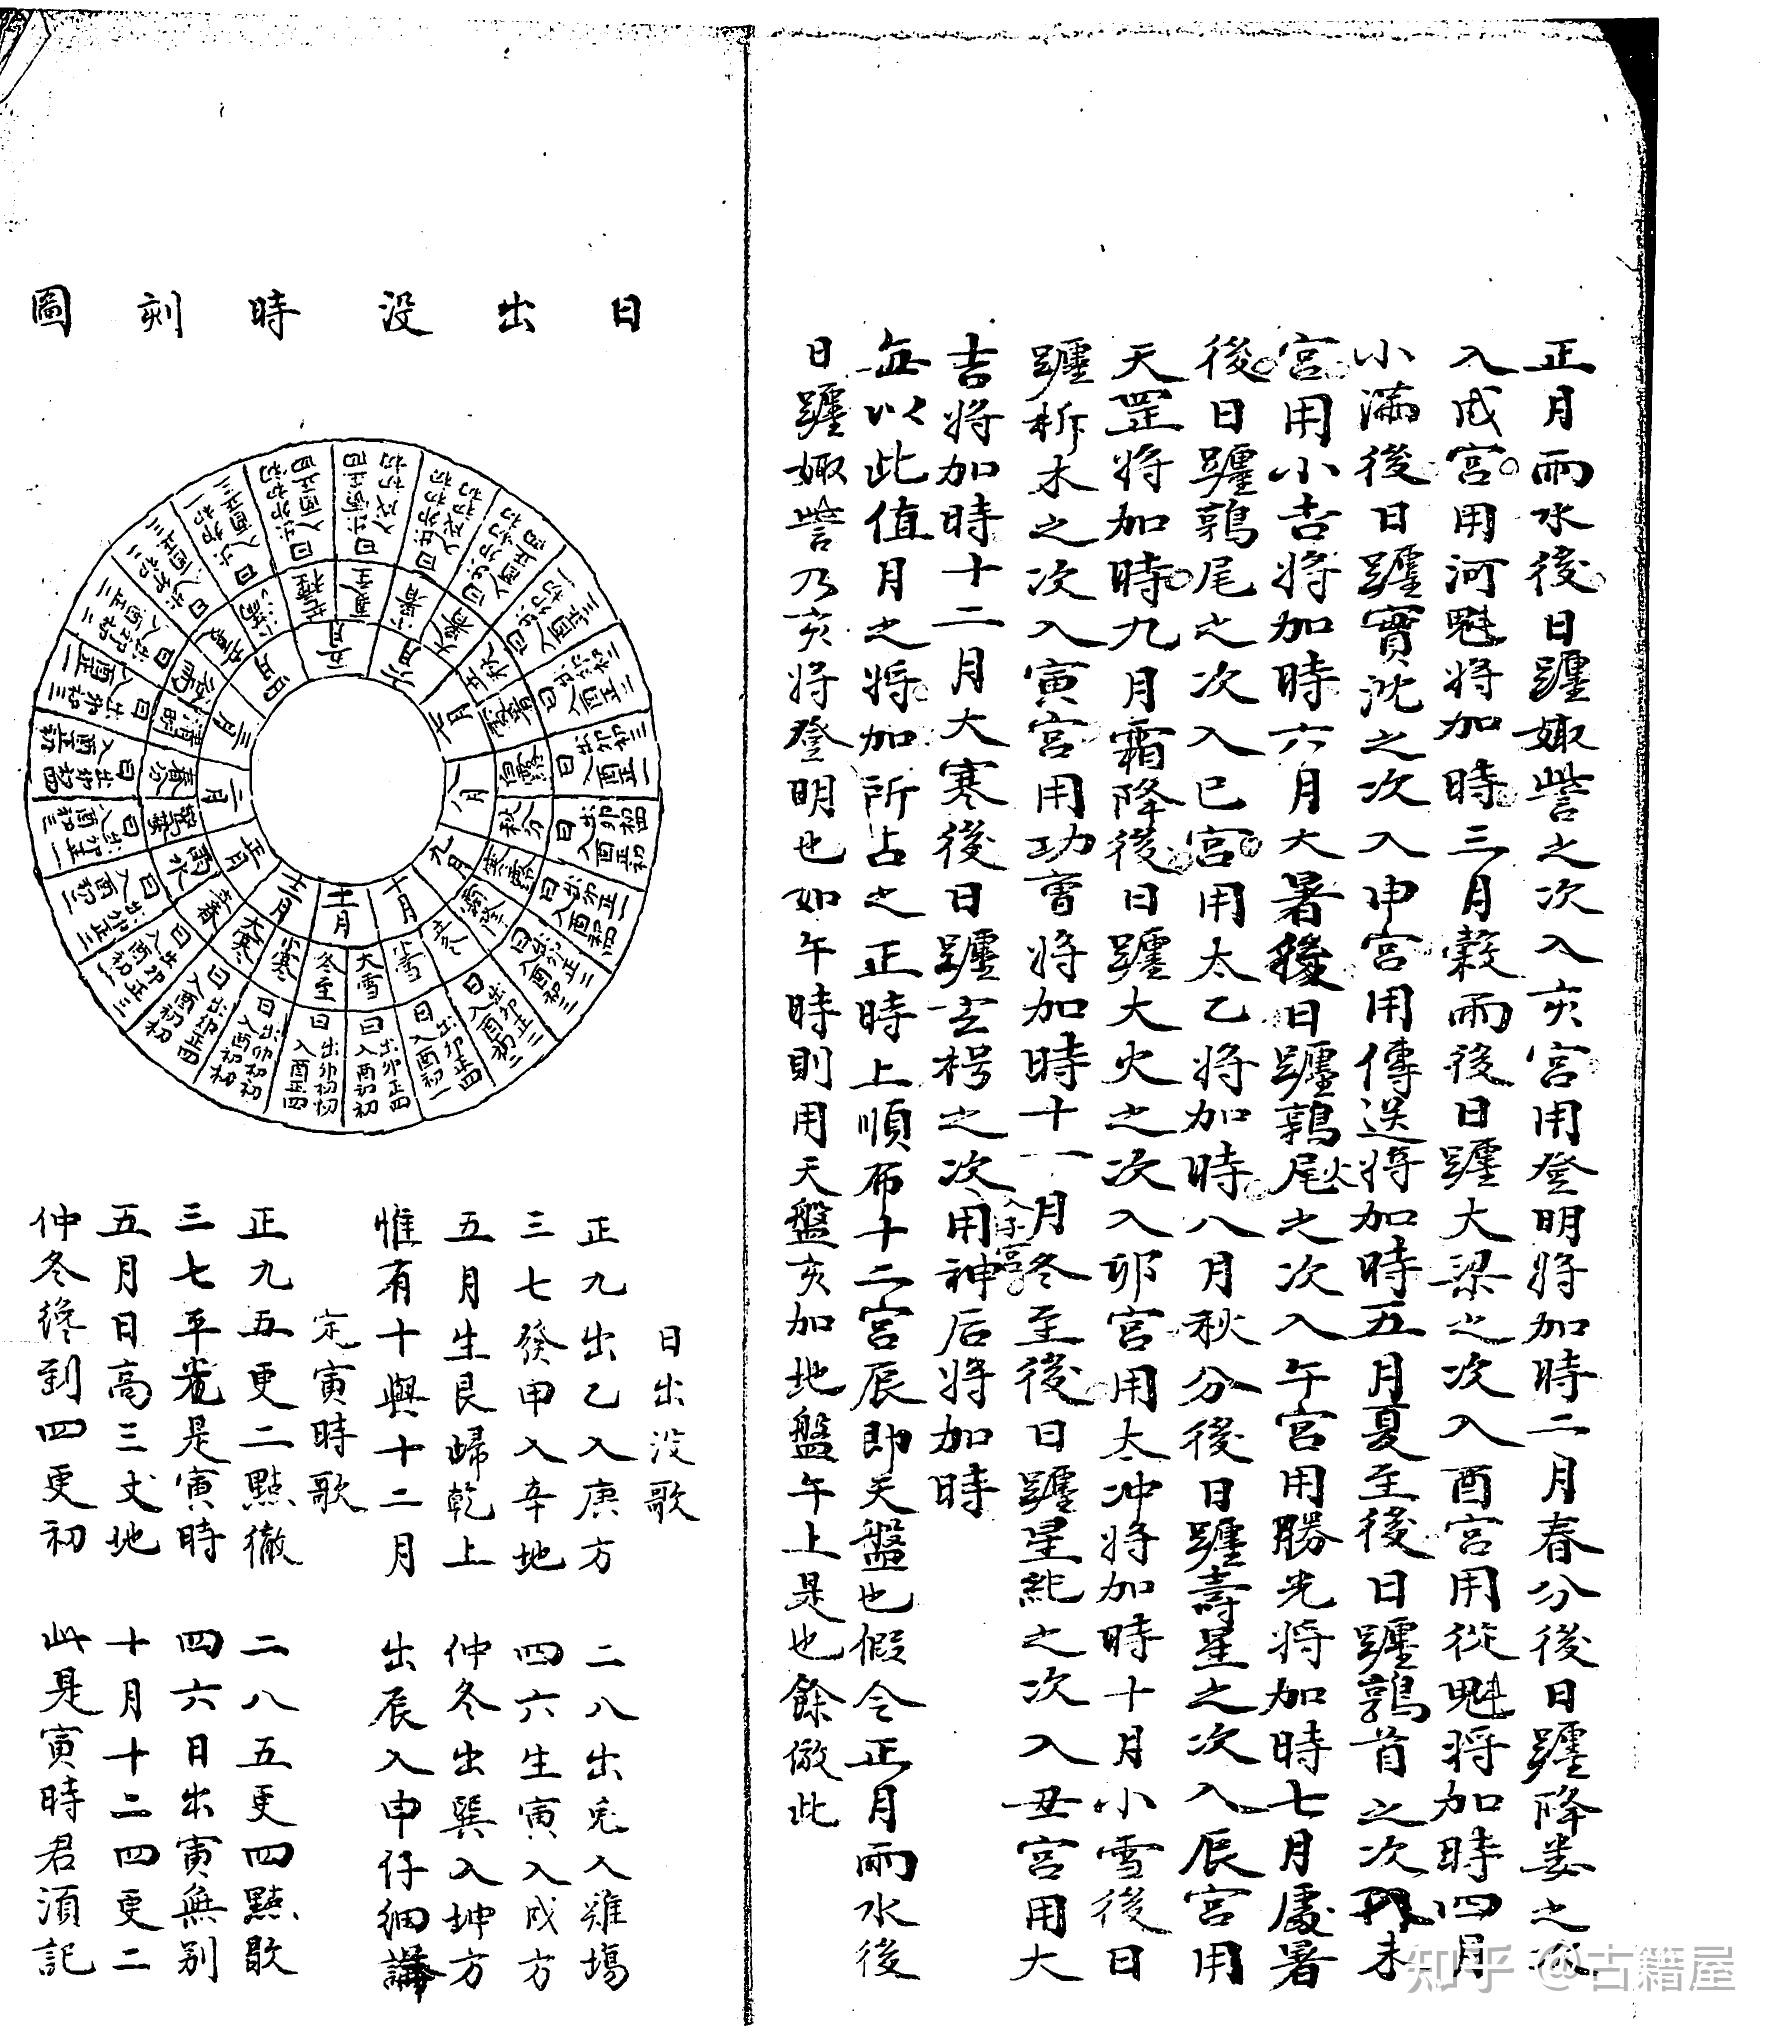 正月雨水後日躔娵訾之次入亥宮用登明將加時二月春分後日躔降婁之次
入戌宮用河魁將加時三月穀雨後日躔大梁之次入酉宮用從魁將加時四月
小滿後日躔實沈之次入申宮用傳送將加時五月夏至後日躔鶉首之次入未
宮用小吉將加時六月大暑後日躔鶉尾火之次入午宮用勝光將加時七月處暑
後日躔鶉尾之次入巳宮用太乙將加時八月秋分後日躔壽星之次入辰宮用
天罡將加時九月霜降後日躔大火之次入卯宮用太冲將加時十月小雪後日
躔析木之次入寅宮用功曹將加時十一月冬至後日躔星紀之次入丑宮用大
吉將加時十二月大寒後日躔玄枵之次入子宮用神后將加時
每以此值月之將加所占之正時上順布十二宮辰即天盤也假令正月雨水後
日躔娵訾乃亥將登明也如午時則用天盤亥加地盤午上是也餘倣此
日出沒時刻圖
正月
二月
三月
四月
五月
六月
七月
八月
九月
十月
十一月
十二月
立春
雨水
驚蟄
春分
清明
穀雨
立夏
小滿
芒種
夏至
小暑
大暑
立秋
處暑
白露
秋分
寒露
霜降
立冬
小雪
大雪
冬至
小寒
大寒
日出卯正四
日入酉初初
日出沒歌
正九出乙入庚方 二八出兎入雞塲
三七發甲入辛地 四六生寅入戌方
五月生艮歸乾上 仲冬出巽入坤方
惟有十與十二月 出辰入申仔細講
定寅時歌
正九五更二點徹 二八五更四點歇
三七平光是寅時 四六日出寅無别
五月日高三丈地 十月十二四更二
仲冬纔到四更初 此是寅時君須記
知乎 @古籍屋